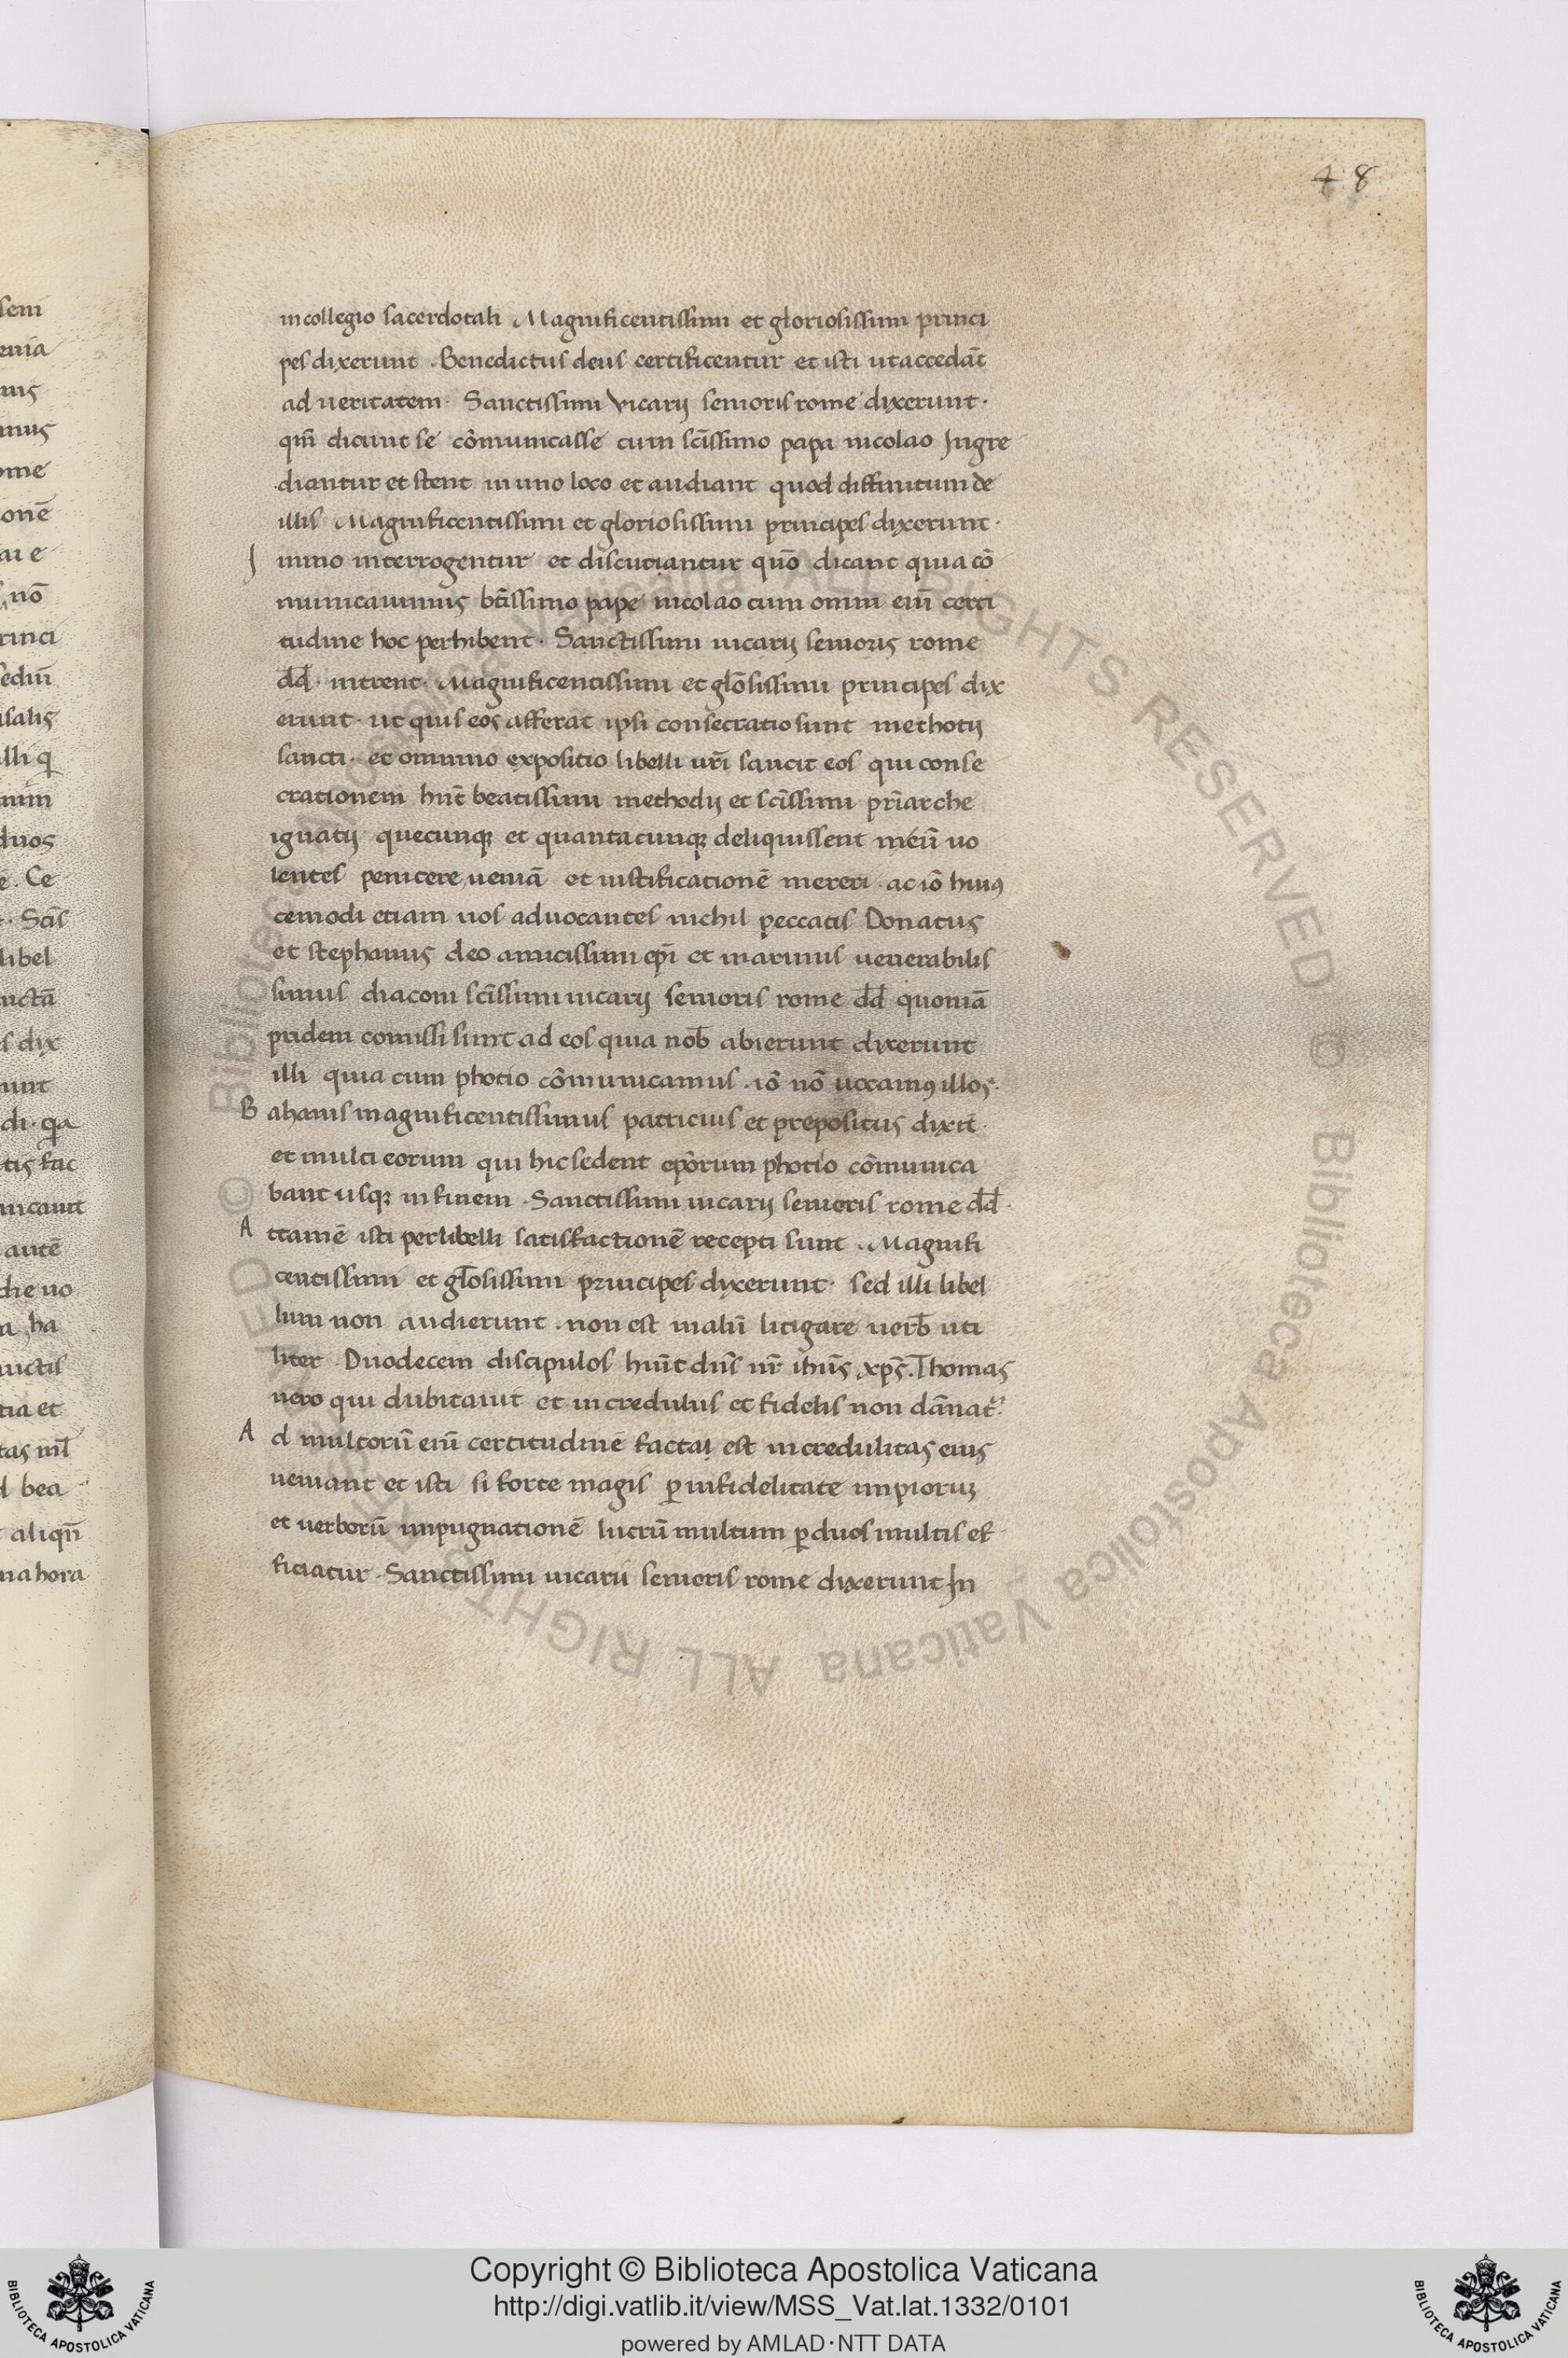 48
in collegio sacerdotali Magnificentissimi et gloriosissimi princi
pes dixerunt . Benedictus deus certificentur et isti ut accedāt
ad ueritatem . Sanctissimi Vicarij senioris rome dixerunt .
qm̄ dicunt se cōmunicasse cum sc̄issimo papa nicolao Ingre
diantur et stent in uno loco et audiant quod diffinitum de
illis Magnificentissimi et gloriosissimi principes dixerunt .
I mmo interrogentur et discutiantur quō dicant quia cō
municauimus bt̄issimo pape nicolao cum omni eni̅ certi
tudine hoc perhibent . Sanctissimi uicarij senioris rome
dd̄ . intrent . Magnificentissimi et glōsissimi principes dix
erunt . ut quis eos afferat ipsi consecratio sunt methotij
sancti . et omnino expositio libelli ur̄i sancit eos qui conse
crationem hn̄t beatissimi methodij et sc̄issimi pr̄iarche
ignatij quecunqꝫ et quantacunqꝫ deliquissent
lentes penitere ueniā et iustificationē mereri . ac iō huiꝰ
cemodi etiam uos aduocantes nichil peccatis Donatus
et stephanus deo amicissimi ep̄i et marinus uenerabilis
simus diaconi sc̄issimi uicarij senioris rome dd̄ quoniā
pridem comissi sunt ad eos quia nob̄ abierunt dixerunt
illi quia cum photio cōmunicamus . iō nō uocamꝰ illos .
B ahanis magnificentissimus patricius et prepositus dixit̄ .
et multi eorum qui hic sedent ep̄orum photio cōmunica
bant usqꝫ in finem . Sanctissimi uicarij senioris rome dd̄ .
A ttamē isti per libelli satisfactionē recepti sunt . Magnifi
centissimi et gl̄osissimi principes dyxerunt . sed illi libel
lum non audierunt . non est malū litigare uerb̄ uti
liter . Duodecem discipulos hūit dn̄s nr̄ ihūs xp̄s . Thomas
uero qui dubitauit et incredulus et fidelis non dānat̄ʳ .
A d multorū eni̅ certitudinē facta est incredulitas eius
ueniant et isti si forte magis ꝑ infidelitatē impioruꝫ
et uerborū impugnationē lucrū multum ꝑ duos multis ef
ficiatur . Sanctissimi uicarii senioris rome dixerunt In
Copyright © Biblioteca Apostolica Vaticana
http://digi.vatlib.it/view/MSS_Vat.lat.1332/0101
powered by AMLAD·NTT DATA